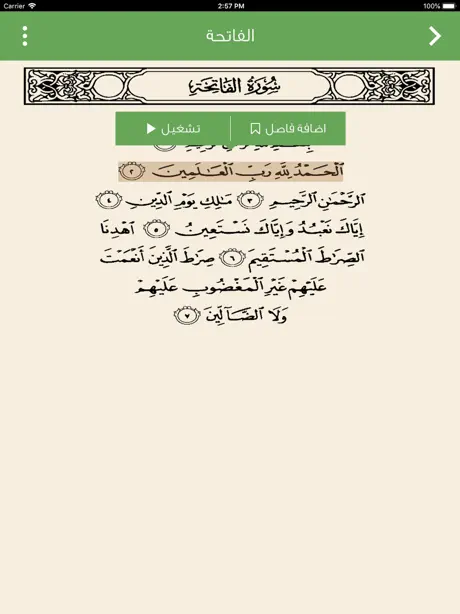 Carrier 2:57 PM 100%
الفاتحة
سُورَةُ الفَاتِحَةِ
اضافة فاصل تشغيل
الْحَمْدُ لِلَّهِ رَبِّ الْعَالَمِينَ ٢
الرَّحْمَٰنِ الرَّحِيمِ ٣ مَالِكِ يَوْمِ الدِّينِ ٤
إِيَّاكَ نَعْبُدُ وَإِيَّاكَ نَسْتَعِينُ ٥ اهْدِنَا
الصِّرَاطَ الْمُسْتَقِيمَ ٦ صِرَاطَ الَّذِينَ أَنْعَمْتَ
عَلَيْهِمْ غَيْرِ الْمَغْضُوبِ عَلَيْهِمْ
وَلَا الضَّآلِّينَ ٧